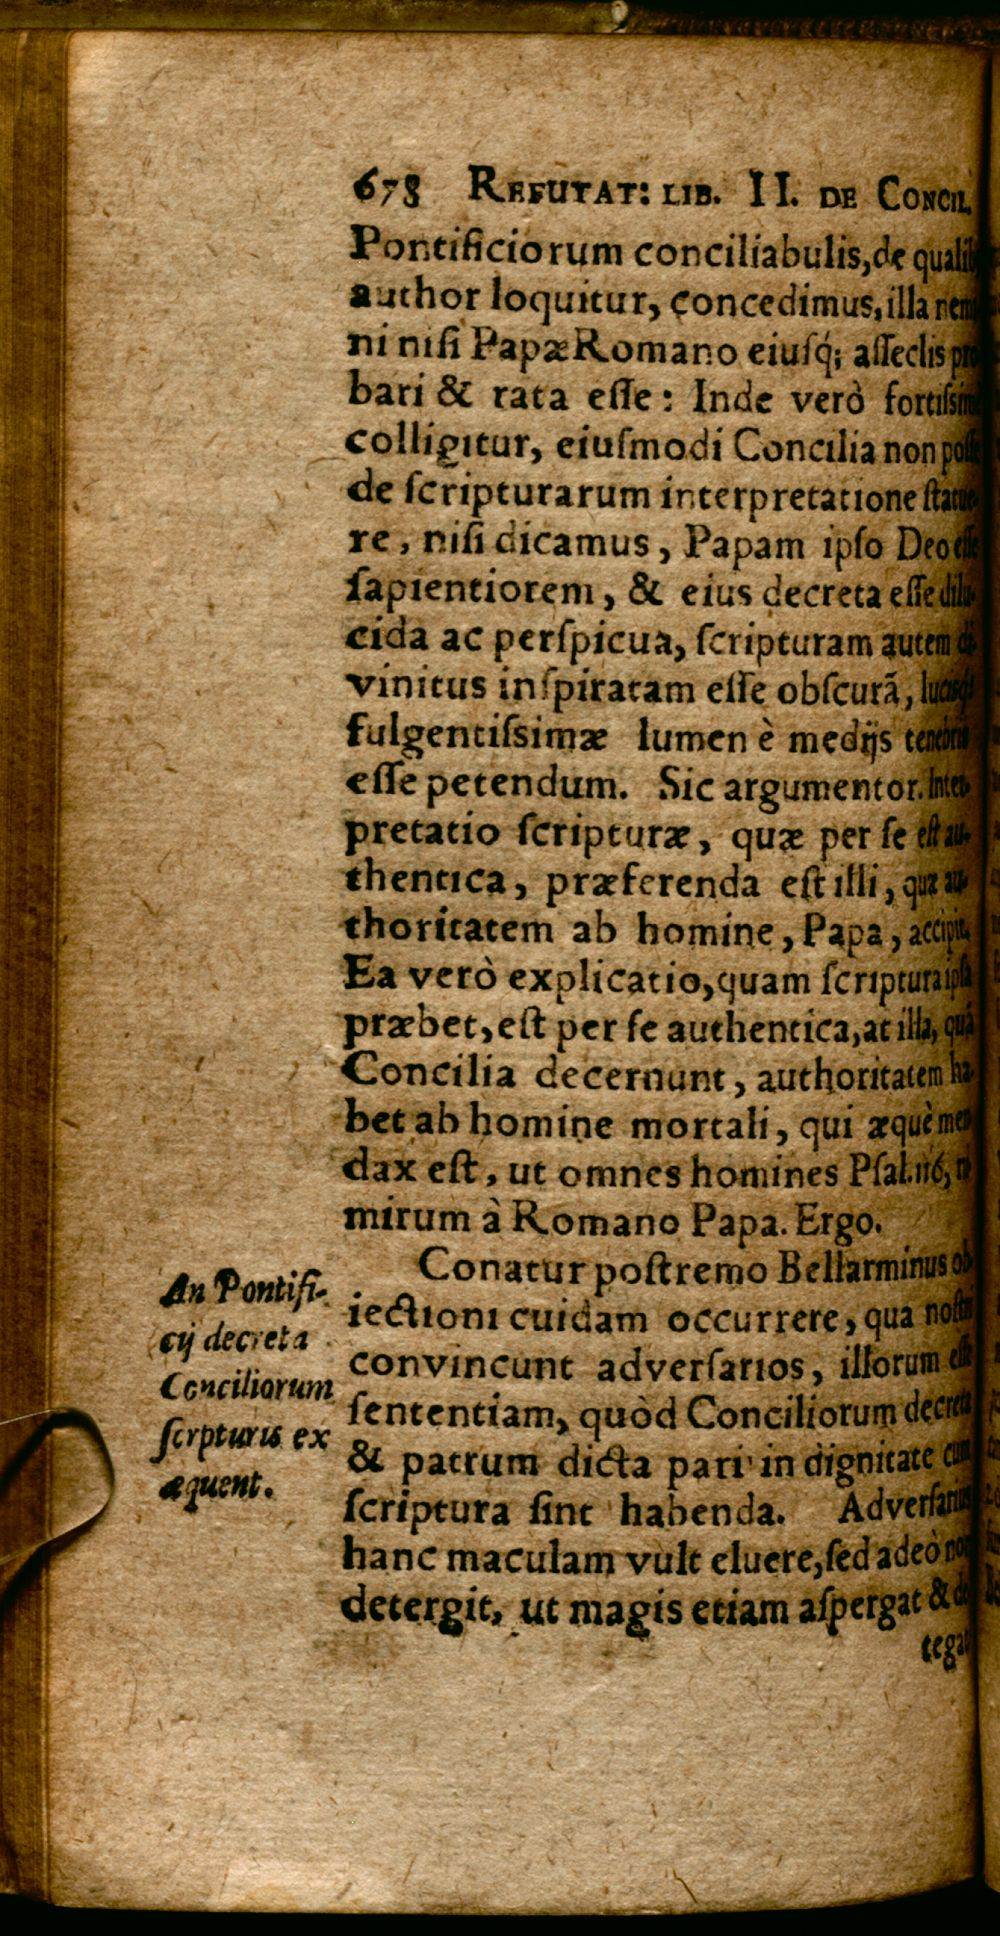 678 REFUTAT: LIB. II. DE CONCIL.
Pontificiorum conciliabulis, de
author loquitur, concedimus, illa
ni nisi Papæ Romano eiusq́; asseclis pro
bari & rata esse: Inde verò
colligitur, eiusmodi Concilia non posse
de scripturarum interpretatione statue-
re, nisi dicamus, Papam ipso Deo esse
sapientiorem, & eius decreta esse dilu-
cida ac perspicua, scripturam autem di-
vinitus inspiratam esse obscurã, lucisq́;
fulgentissimæ lumen è medijs tenebris
esse petendum. Sic argumentor. Inter-
pretatio scripturæ, quæ per se est au-
thentica, præferenda est illi, quæ au-
thoritatem ab homine, Papa, accipit.
Ea verò explicatio, quam scriptura ipsa
præbet, est per se authentica, at illa, quã
Concilia decernunt, authoritatem ha-
bet ab homine mortali, qui æquè men
dax est, ut omnes homines Psal. 116, ni
mirum à Romano Papa. Ergo.
Conatur postremo Bellarminus ob
iectioni cuidam occurrere, qua nostri
convincunt adversarios, illorum esse
sententiam, quòd Conciliorum decreta
& patrum dicta pari in dignitate cum
scriptura sint habenda. Adversarius
hanc maculam vult eluere, sed adeò non
detergit, ut magis etiam aspergat & de
tegat
An Pontifi-
cij decreta
Conciliorum
scrpturis ex
æquent.